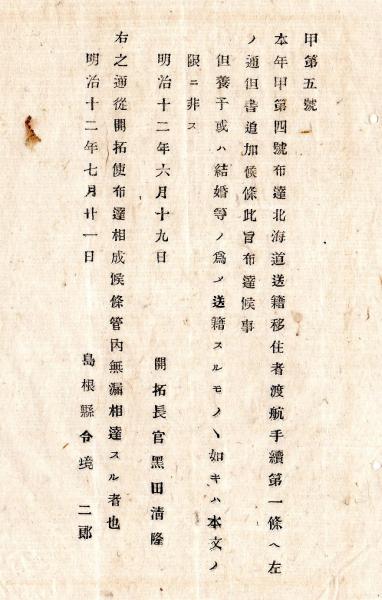 甲第五號
本年甲第四號布達北海道送籍移住者渡航手續第一條ヘ左
ノ通但書追加候條此旨布達候事
但養子或ハ結婚等ノ爲メ送籍スルモノヽ如キハ本文ノ
限ニ非ス
明治十二年六月十九日
開拓長官黑田淸隆
右之通從開拓使布達相成候條管內無漏相達スル者也
明治十二年七月廿一日
島根縣令境二郎